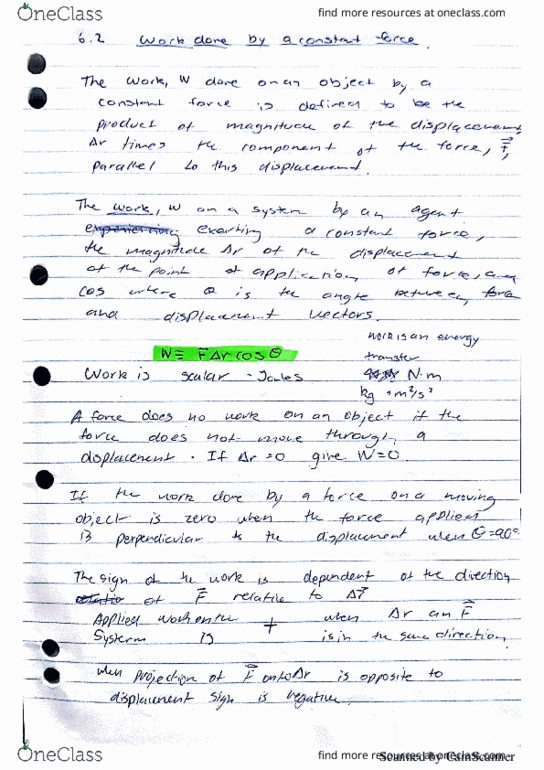 OneClass
find more resources at oneclass.com
6.2 Work done by a constant force.
The work, W done on an object by a
constant force is defined to be the
product of magnitude of the displacement,
Δr times the component of the force, F,
parallel to this displacement.
The work, W on a system by an agent
exerting a constant force,
the magnitude Δr of the displacement
of the point of application of force, and
cos where θ is the angle between force
and displacement vectors.
work is an energy
transfer
W ≡ FΔr cos θ
Work is scalar - Joules
N·m
kg = m²/s²
A force does no work on an object if the
force does not move through a
displacement. If Δr=0 give W=0.
If the work done by a force on a moving
object is zero when the force applied
is perpendicular to the displacement when θ=90°
The sign of the work is dependent of the direction
of F relative to Δr
Applied work on the + when Δr an F
System is is in the same direction
when projection of F onto Δr is opposite to
displacement sign is negative.
OneClass
find more resources at oneclass.com
Scanned by CamScanner